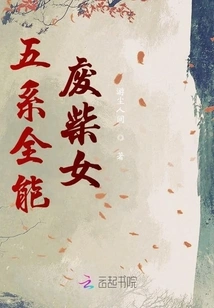 五系全能
废柴女
著
云起书院